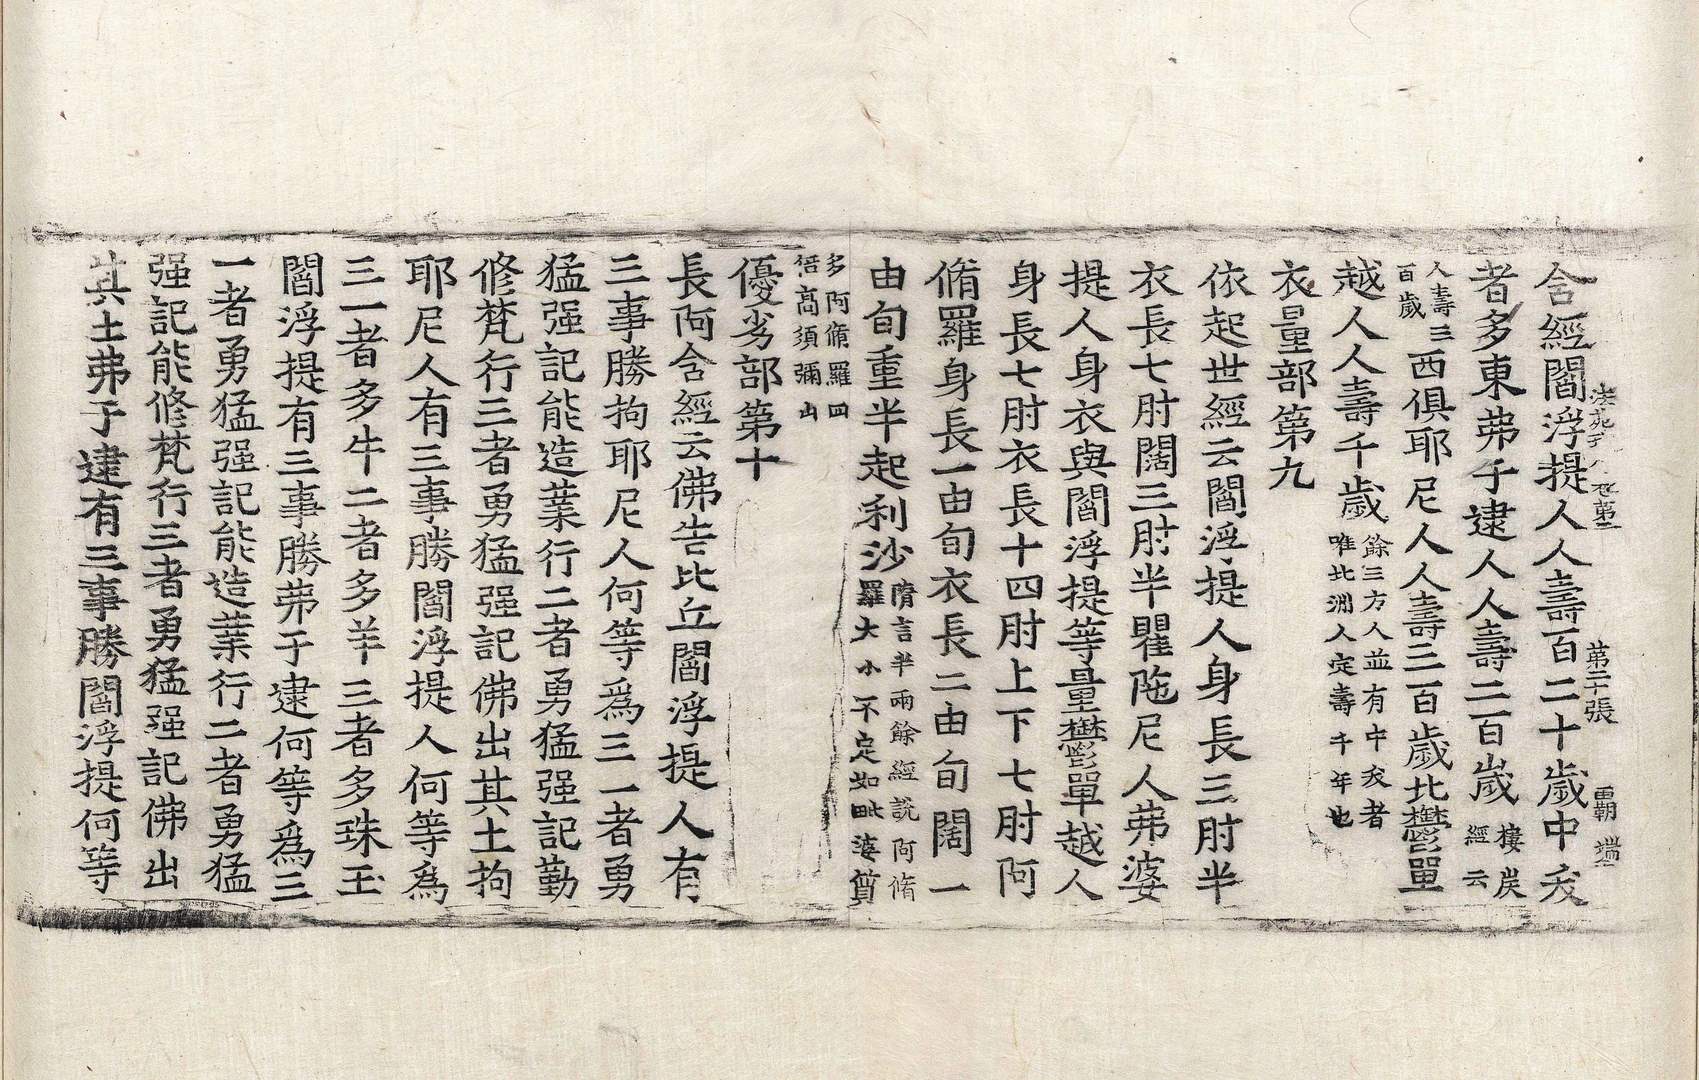 法苑 第二 第二十張 覇 端
含經閻浮提人人壽百二十歲中夭
者多東弗于逮人人壽二百歲樓炭經云
人壽三百歲西俱耶尼人人壽三百歲北欝單
越人人壽千歲餘三方人並有中夭者唯北洲人定壽千年也
衣量部第九
依起世經云閻浮提人身長三肘半
衣長七肘闊三肘半瞿陁尼人弗婆
提人身衣與閻浮提等量欝單越人
身長七肘衣長十四肘上下七肘阿
脩羅身長一由旬衣長二由旬闊一
由旬重半起利沙隋言半兩餘經說阿脩羅大小不定如毗婆質
多阿脩羅四倍高須彌山
優劣部第十
長阿含經云佛告比丘閻浮提人有
三事勝拘耶尼人何等爲三一者勇
猛强記能造業行二者勇猛强記勤
修梵行三者勇猛强記佛出其土拘
耶尼人有三事勝閻浮提人何等爲
三一者多牛二者多羊三者多珠玉
閻浮提有三事勝弗于逮何等爲三
一者勇猛强記能造業行二者勇猛
强記能修梵行三者勇猛强記佛出
其土弗于逮有三事勝閻浮提何等